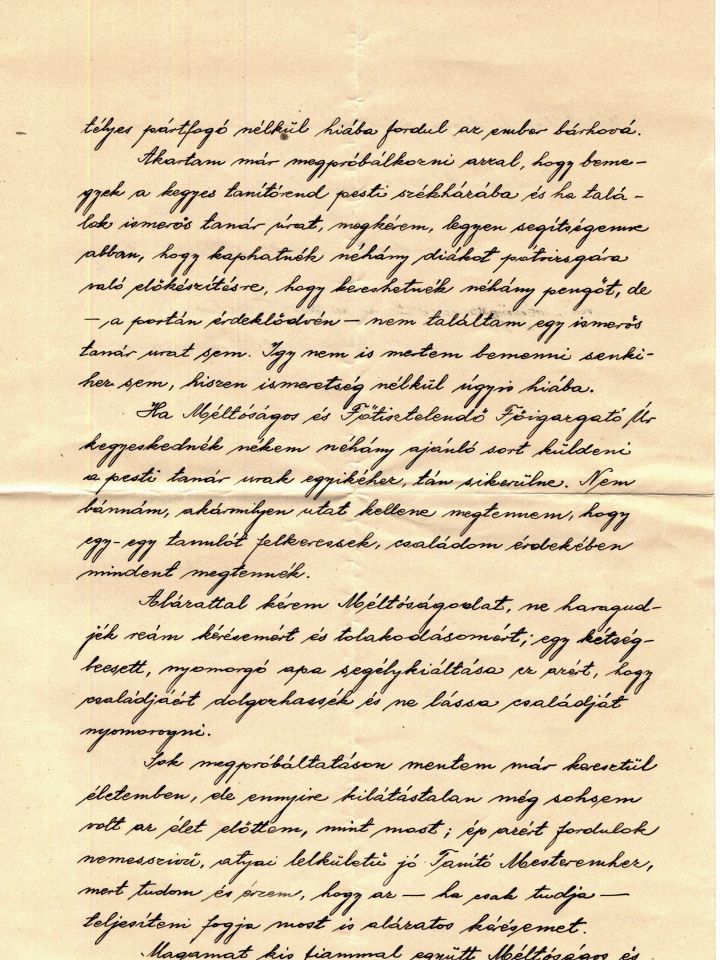 télyes pártfogó nélkül hiába fordul az ember bárhová.
Akartam már megpróbálkozni azzal, hogy beme-
gyek a kegyes tanítórend pesti székházába és ha talá-
lok ismerős tanár urat, megkérem, legyen segítségemre
abban, hogy kaphatnék néhány diákot pótvizsgára
való előkészítésre, hogy kereshetnék néhány pengőt, de
— a portán érdeklődvén — nem találtam egy ismerős
tanár urat sem. Igy nem is mertem bemenni senki-
hez sem, hiszen ismeretség nélkül úgyis hiába.
Ha Méltóságos és Főtisztelendő Főigazgató Úr
kegyeskednék nékem néhány ajánló sort küldeni
a pesti tanár urak egyikéhez, tán sikerülne. Nem
bánnám, akármilyen utat kellene megtennem, hogy
egy-egy tanulót felkeressek, családom érdekében
mindent megtennék.
Alázattal kérem Méltóságodat, ne haragud-
jék reám kérésemért és tolakodásomért; egy kétség-
beesett, nyomorgó apa segélykiáltása ez azért, hogy
családjáért dolgozhassék és ne lássa családját
nyomorogni.
Sok megpróbáltatáson mentem már keresztül
életemben, de ennyire kilátástalan még sohsem
volt az élet előttem, mint most; ép azért fordulok
nemesszivű, atyai lelkületű jó Tanító Mesteremhez,
mert tudom és érzem, hogy az — ha csak tudja —
teljesíteni fogja most is alázatos kérésemet.
Magamat kis fiammal együtt Méltóságos és